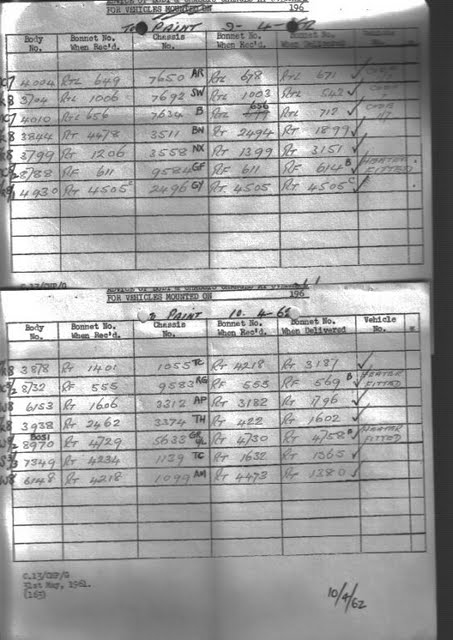 FOR VEHICLES MOUNTED ON 196
To PAINT 9-4-62
Body No. Bonnet No. When Rec'd. Chassis No. Bonnet No. Bonnet No. When Delivered
4004 RTL 649 7650 AR RTL 678 RTL 671 ✓
3704 RTL 1006 7692 SW RTL 1003 RTL 542 ✓
4010 RTL 656 7634 B RTL 656 RTL 712 ✓
3844 RT 4478 3511 BN RT 2494 RT 1899 ✓
3799 RT 1206 3558 NX RT 1399 RT 3151 ✓
8788 RF 611 9584 GF RF 611 RF 614 B ✓ HEATER FITTED
4930 RT 4505 C 2496 GY RT 4505 RT 4505 C ✓
C.13/CHP/G
FOR VEHICLES MOUNTED ON 196
PAINT 10.4-62
Body No. Bonnet No. When Rec'd. Chassis No. Bonnet No. Bonnet No. When Delivered Vehicle No.
K8 3878 RT 1401 1055 TC RT 4218 RT 3187 ✓
8732 RF 555 9583 AG RF 555 RF 569 B ✓ HEATER FITTED
W8 6153 RT 1606 3312 AP RT 3182 RT 1796 ✓
K8 3938 RT 2462 3374 TH RT 422 RT 1602 ✓
8051
8970 RT 4729 5633 RT 4730 RT 4758 B ✓ HEATER FITTED
7349 RT 4234 1139 TC RT 1632 RT 1365 ✓
W8 6148 RT 4218 1099 AM RT 4473 RT 1380 ✓
C.13/CHP/G
31st May, 1961.
(165)
10/4/62